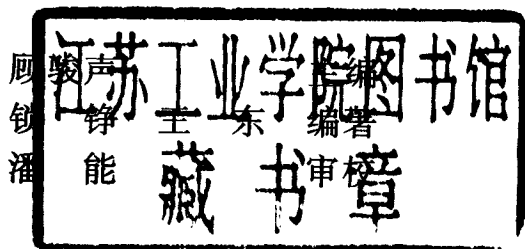 江苏工业学院图书馆
藏书章
顾骏声 主编
锁铮 王东 编著
潘能 审校